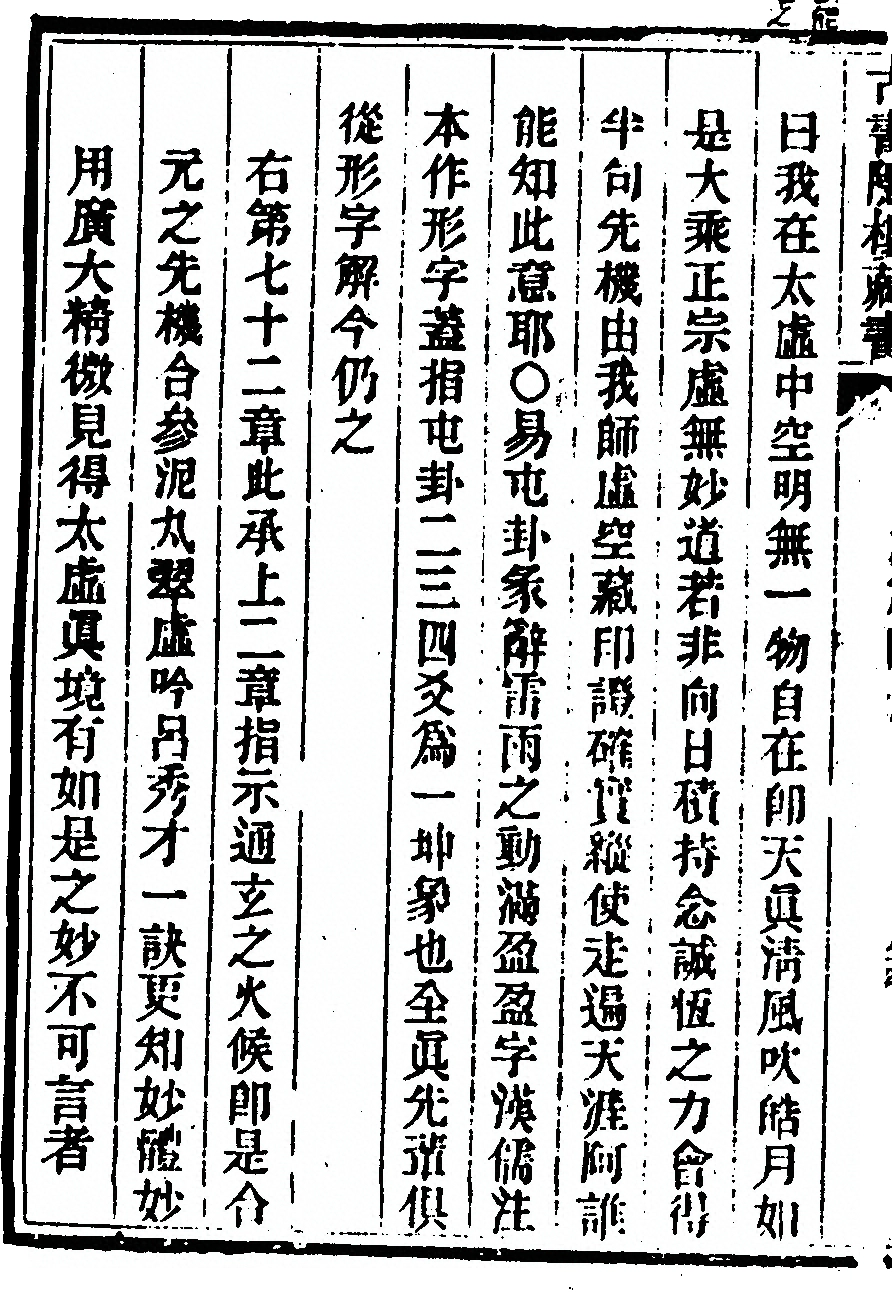 古書隱樓藏書
曰我在太虛中空明無一物自在卽天眞淸風吹皓月如
是大乘正宗虛無妙道若非向日積持念誠恆之力會得
半句先機由我師虛空藏印證確實縱使走遍天涯阿誰
能知此意耶○易屯卦彖辭雷雨之動滿盈盈字漢儒注
本作形字蓋指屯卦二三四爻爲一坤象也全眞先輩俱
從形字解今仍之
右第七十二章此承上二章指示通玄之火候卽是合
元之先機合參泥丸翠虛吟呂秀才一訣更知妙體妙
用廣大精微見得太虛眞境有如是之妙不可言者